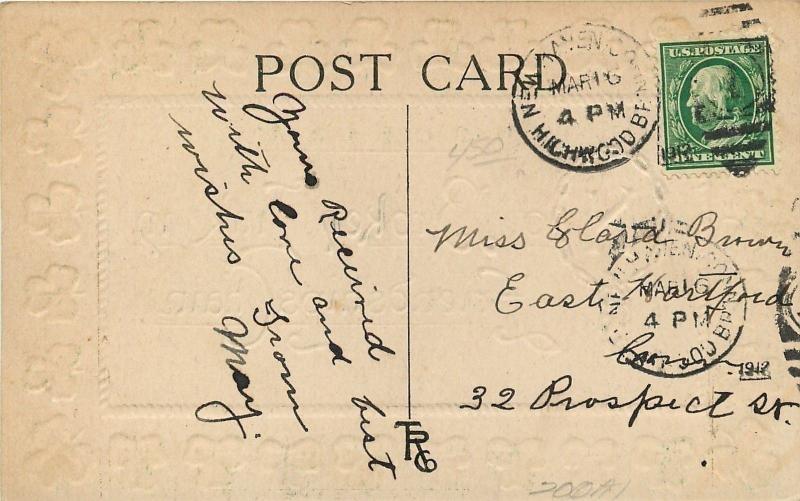 POST CARD
Yours Received
with love and best
wishes from
May.
NEW HAVEN CONN.
MAR 16
4 PM
HIGHWOOD BR.
1912
U.S. POSTAGE
ONE CENT
450
Miss Eland Brown
East Hartford
Conn
32 Prospect St.
NEW HAVEN CONN.
MAR 16
4 PM
HIGHWOOD BR.
1912
TRC
200A1